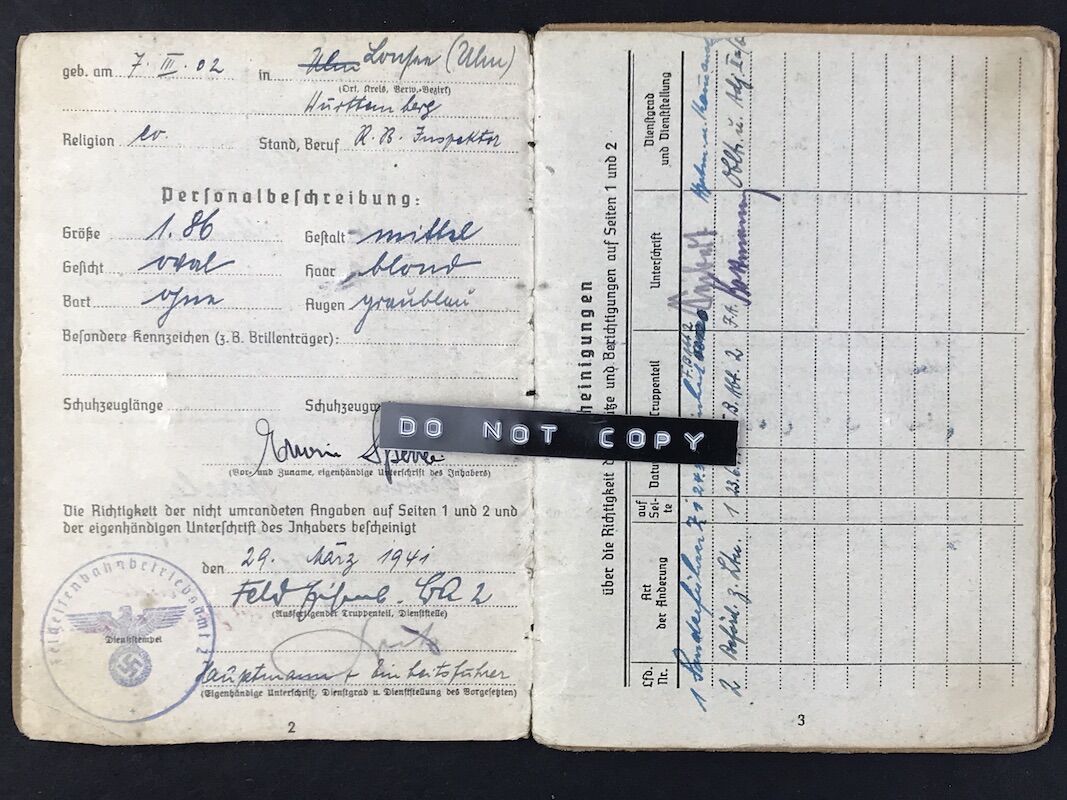 geb. am 7. III. 02 in Ulm Lonsee (Ulm)
(Ort, Kreis, Verw.-Bezirk)
Württemberg
Religion ev. Stand, Beruf R. B. Inspektor
Personalbeschreibung:
Größe 1.86 Gestalt mittel
Gesicht oval Haar blond
Bart ohne Augen graublau
Besondere Kennzeichen (z. B. Brillenträger):
Schuhzeuglänge Schuhzeugw
DO NOT COPY
Erwin
(Vor- und Zuname, eigenhändige Unterschrift des Inhabers)
Die Richtigkeit der nicht umrandeten Angaben auf Seiten 1 und 2 und
der eigenhändigen Unterschrift des Inhabers bescheinigt
den 29. März 1941
Feld
(Ausfertigender Truppenteil, Dienststelle)
Feldeisenbahnbetriebsamt 2
Dienststempel
Hauptmann + Einheitsführer
(Eigenhändige Unterschrift, Dienstgrad u. Dienststellung des Vorgesetzten)
2
heinigungen
über die Richtigkeit d sätze und Berichtigungen auf Seiten 1 und 2
Lfd. Nr. Art der Änderung auf Seite Datu Truppenteil Unterschrift Dienstgrad und Dienststellung
1 Sonderführer Z
2 Beförd. z. Ltn. 1 23.6. 2 Oblt. u. Adj.
3